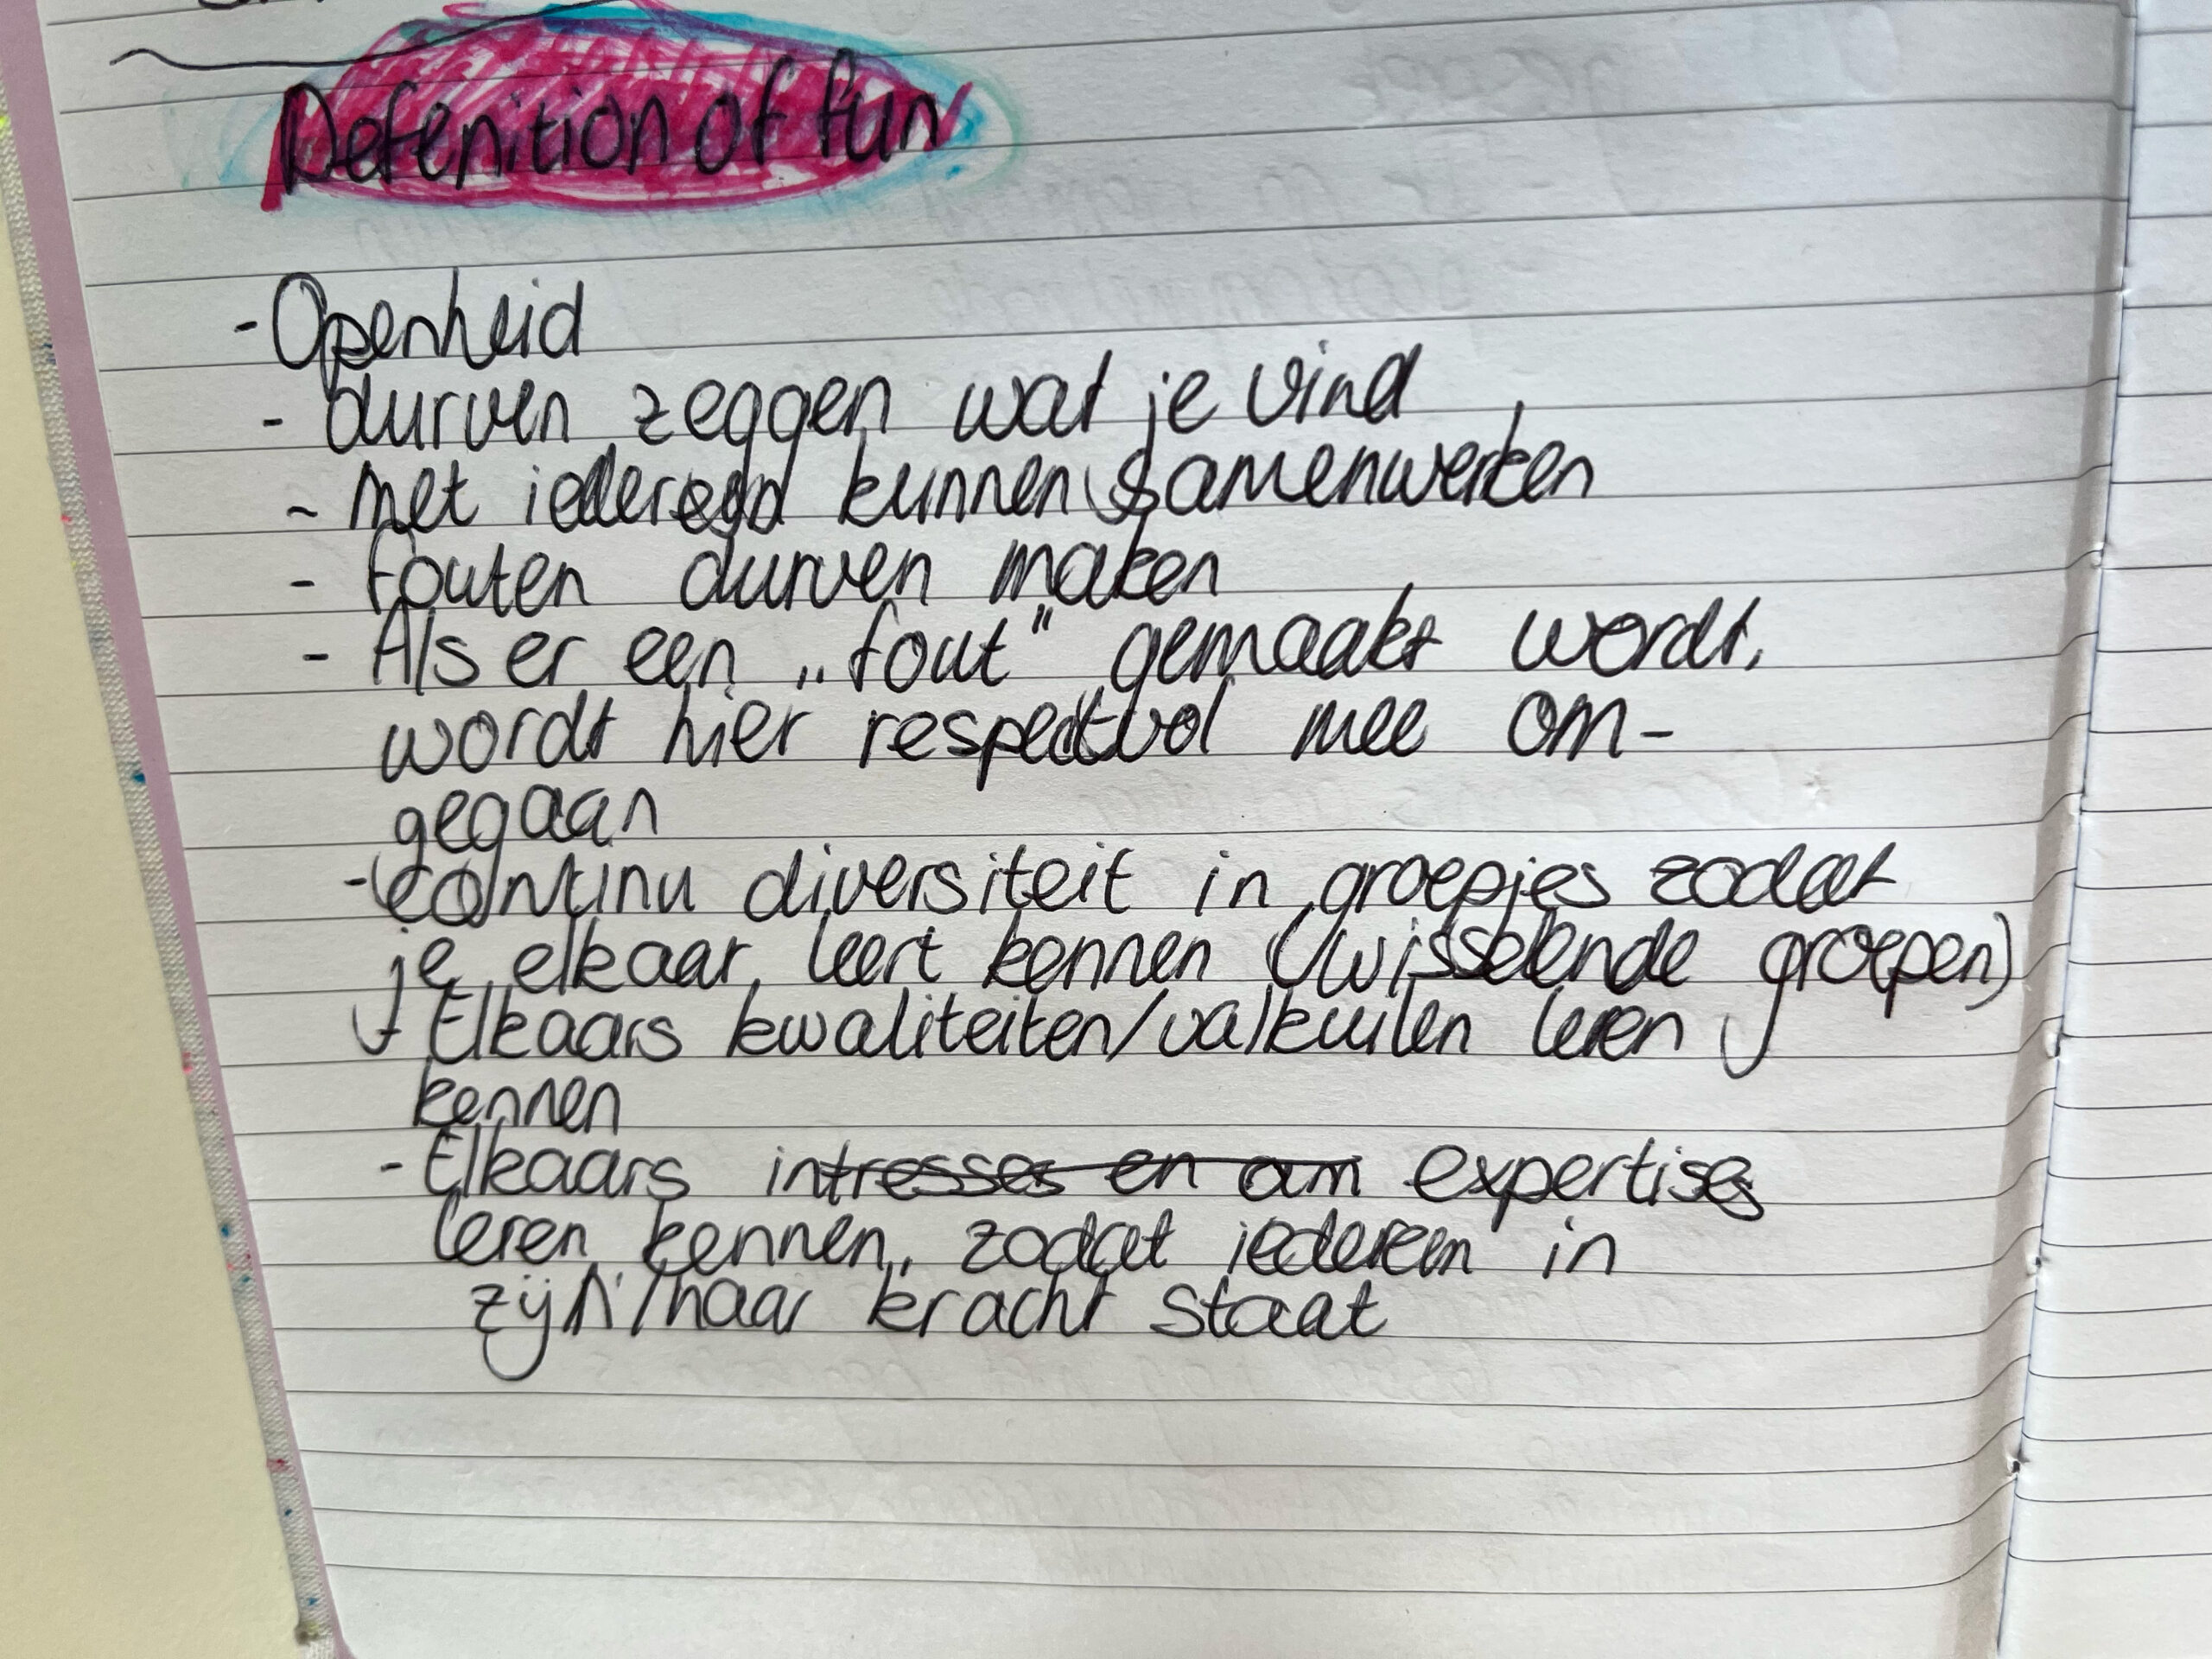 Defenition of fun
- Openheid
- durven zeggen wat je vind
- met iedereen kunnen samenwerken
- Fouten durven maken
- Als er een „fout" gemaakt wordt,
wordt hier respectvol mee om-
gegaan
- continu diversiteit in groepjes zodat
je elkaar leert kennen (wisselende groepen)
Elkaars kwaliteiten/valkuilen leren
kennen
- Elkaars intresses en am expertises
leren kennen, zodat iedereen in
zijn/haar kracht staat